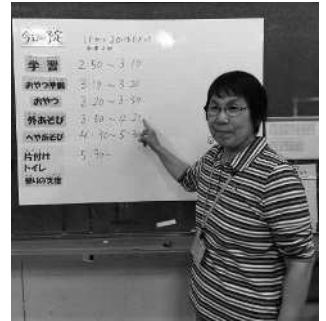 今日の予定
学習 2:50～3:10
おやつ準備 3:10～3:20
おやつ 3:20～3:30
外あそび 3:30～4:2
へやあそび 4:30～5:3
片付け 5:30～
トイレ
帰りの支度